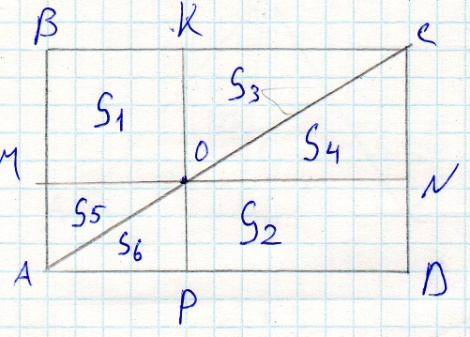 B K C
S1 S3
O S4
M N
S5 S6 S2
A P D